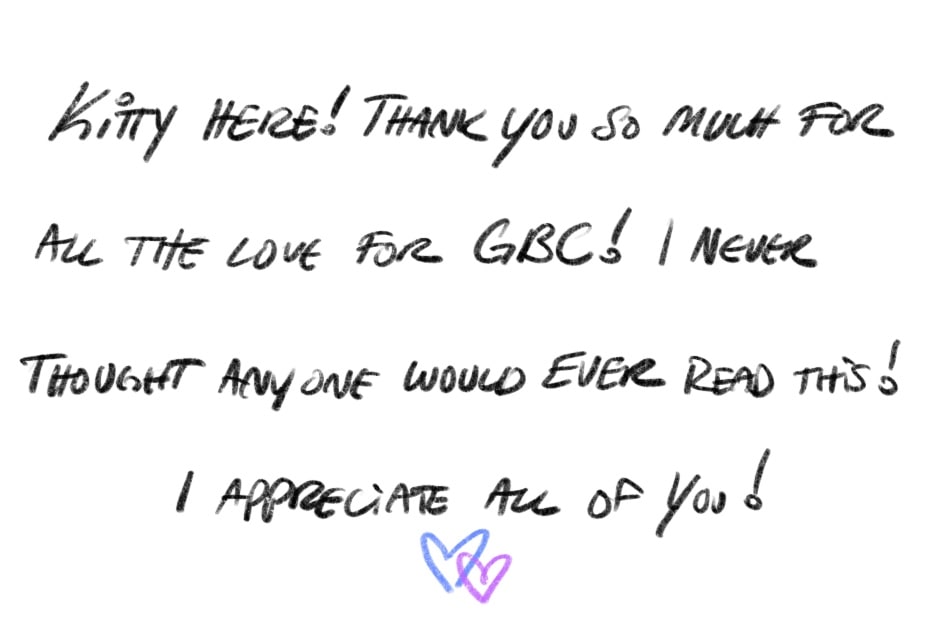 Kitty HERE! THANK YOU SO MUCH FOR
ALL THE LOVE FOR GBC! I NEVER
THOUGHT ANYONE WOULD EVER READ THIS!
I APPRECIATE ALL OF YOU!